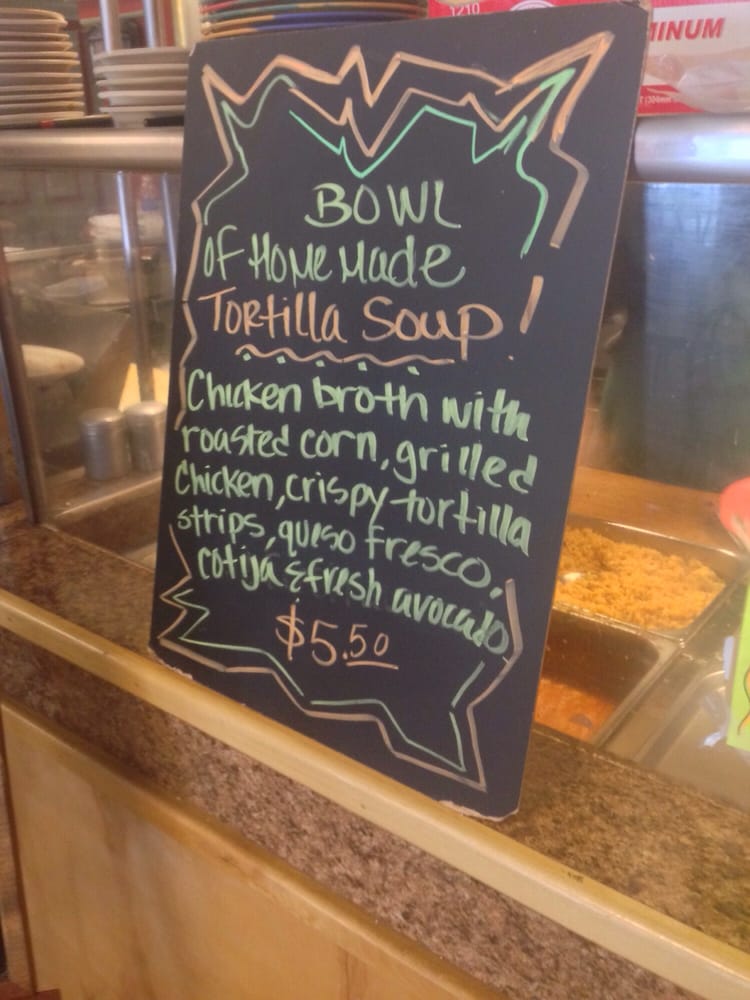 1210
MINUM
BOWL
of HomeMade
Tortilla Soup!
Chicken broth with
roasted corn, grilled
Chicken, crispy tortilla
strips, queso fresco,
cotija & fresh avocado
$5.50